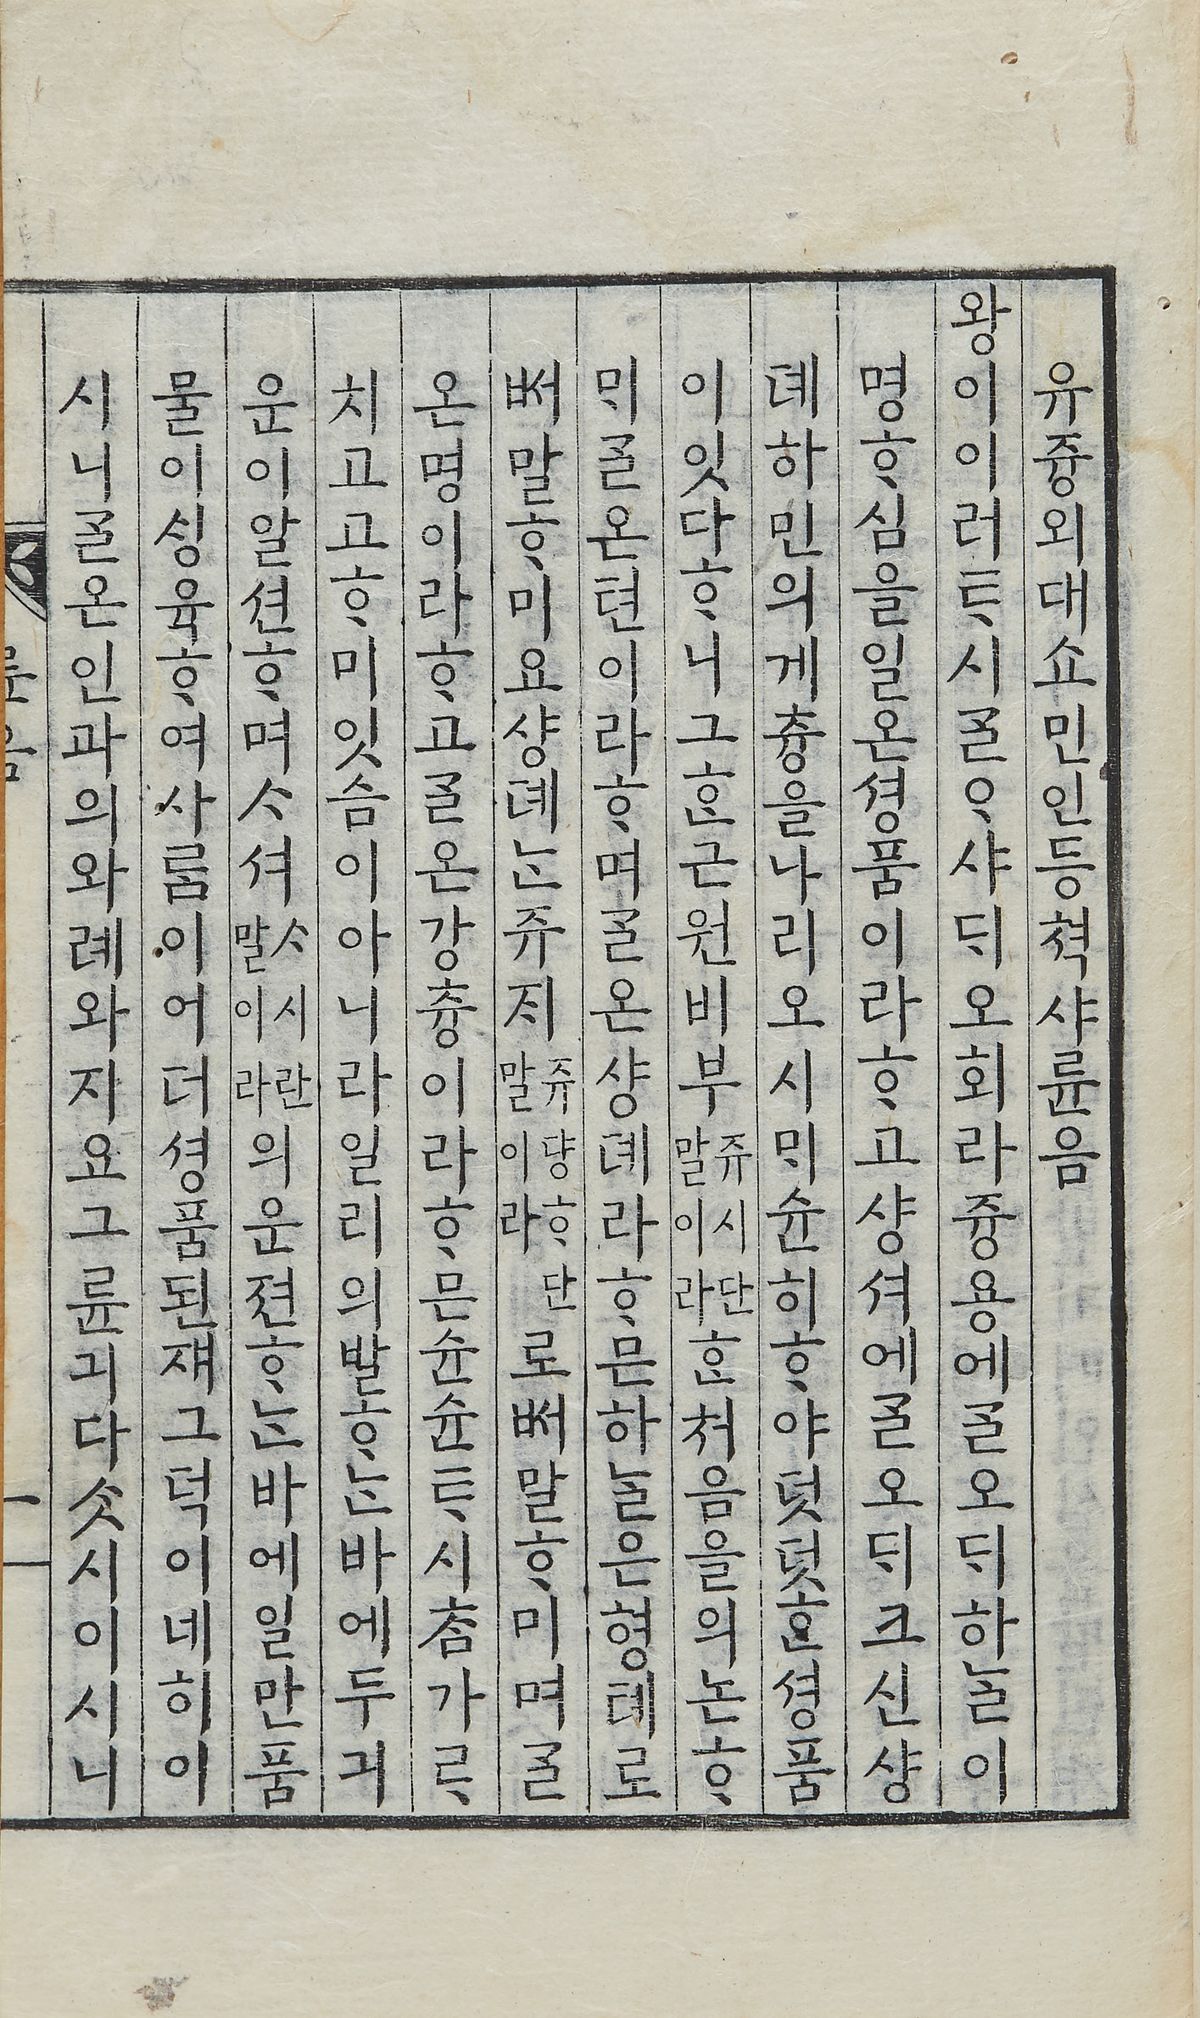 유즁외대쇼민인등쳑샤륜음
왕이이러트시ᄀᆞᆯᄋᆞ샤ᄃᆡ오회라즁용에ᄀᆞᆯ오ᄃᆡ하ᄂᆞᆯ이
명ᄒᆞ심을일온셩품이라ᄒᆞ고샹셔에ᄀᆞᆯ오ᄃᆡ크신샹
뎨하민의게츙을나리오시ᄆᆡ슌히ᄒᆞ야덧덧ᄒᆞᆫ셩품
이잇다ᄒᆞ니그ᄒᆞᆫ근원비부쥬시단말이라ᄒᆞᆫ처음을의논ᄒᆞ
ᄆᆡᄀᆞᆯ온텬이라ᄒᆞ며ᄀᆞᆯ온샹뎨라ᄒᆞ믄하ᄂᆞᆯ은형톄로
ᄡᅥ말ᄒᆞ미요샹뎨ᄂᆞᆫ쥬ᄌᆡ쥬댱ᄒᆞ단말이라로ᄡᅥ말ᄒᆞ미며ᄀᆞᆯ
온명이라ᄒᆞ고ᄀᆞᆯ온강츙이라ᄒᆞ믄슌슌트시ᄎᆞᆷ가ᄅᆞ
치고고ᄒᆞ미잇슴이아니라일리의발ᄒᆞᄂᆞᆫ바에두긔
운이알션ᄒᆞ며ᄉᆞ셔ᄉᆞ시란말이라의운젼ᄒᆞᄂᆞᆫ바에일만품
물이ᄉᆡᆼ육ᄒᆞ여사ᄅᆞᆷ이어더셩품된쟤그덕이네히이
시니ᄀᆞᆯ온인과의와례와지요그륜긔다ᄉᆞᆺ시이시니